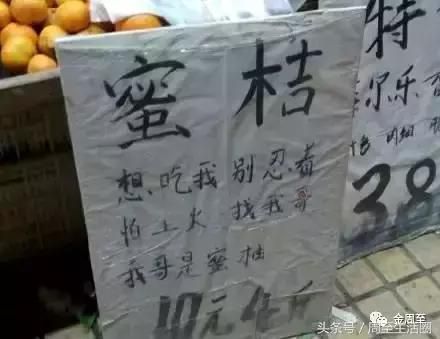 蜜桔
想吃我别忍着
怕上火找我哥
我哥是蜜柚
10元4斤
特
尔乐
38
金周至
头条号/周至生活圈